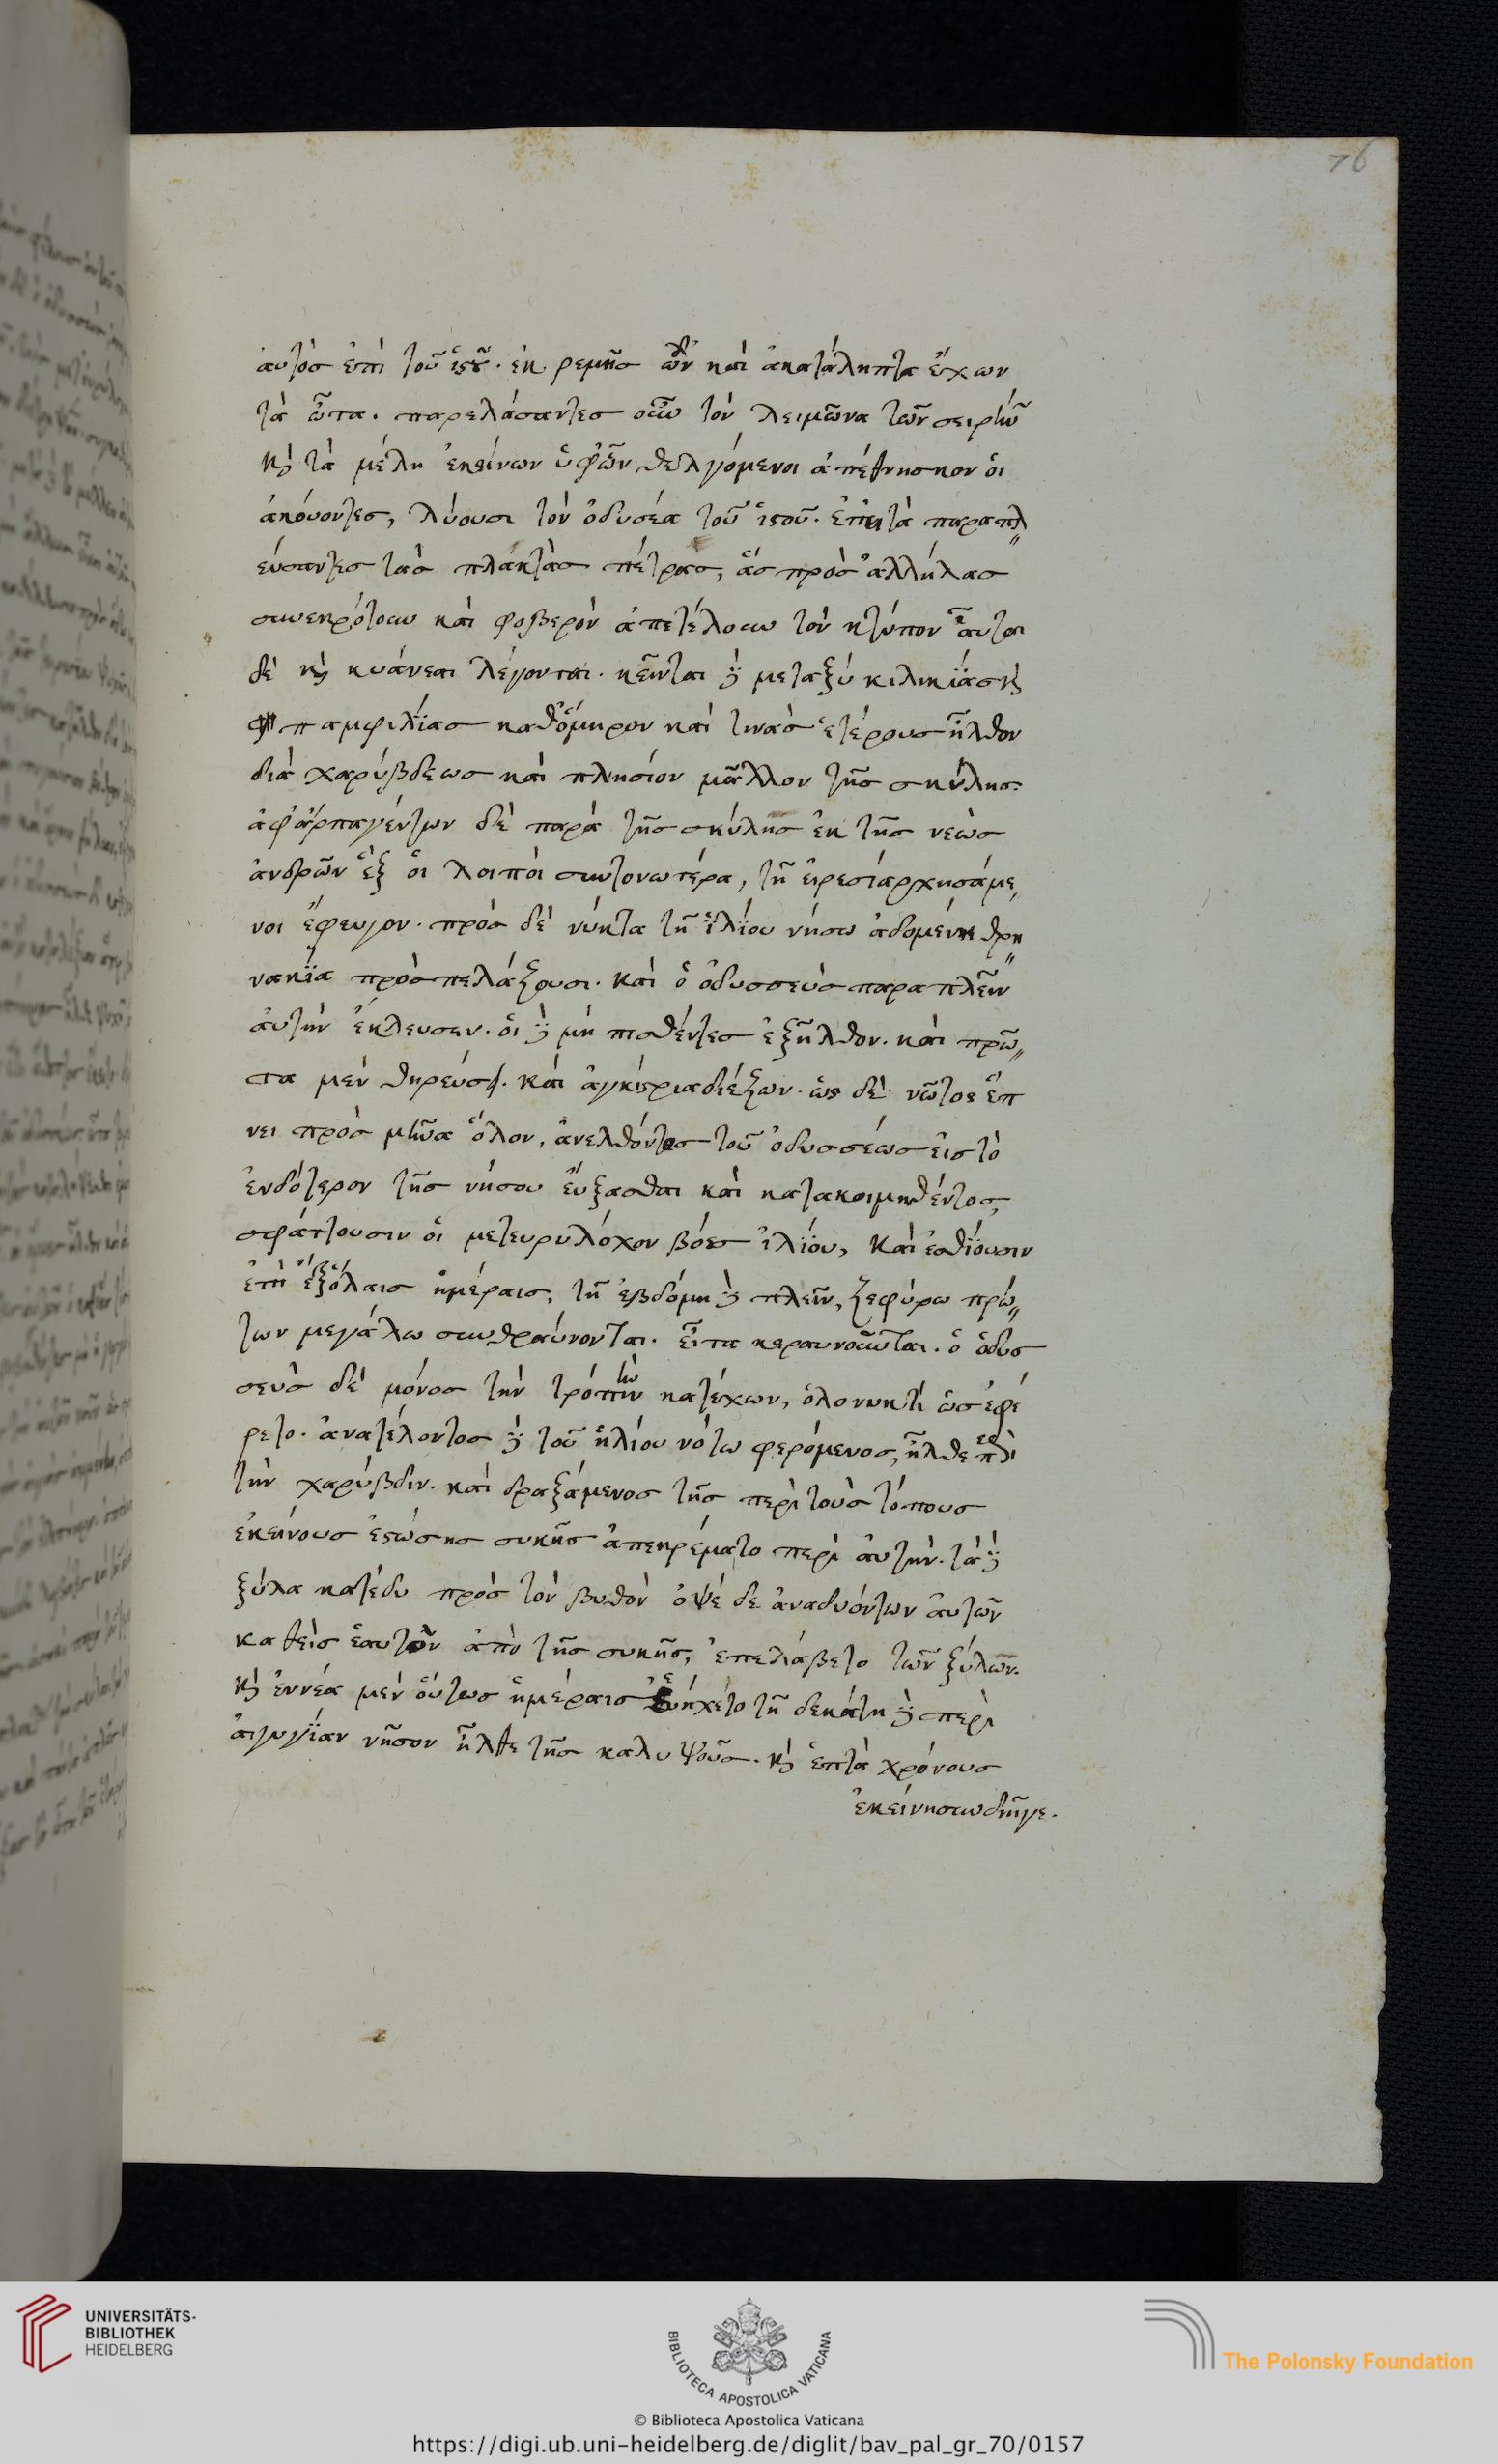 76
αὐτὸσ ἐπὶ τοῦ ἱστοῦ. ἐκ ρεμὴσ ὢν καὶ ἀκατάληπτα ἔχων
τὰ ὦτα. παρελάσαντεσ οὖν τὸν λειμῶνα τῶν σειρήν
κ τὰ μέλη ἐκείνων ὑφῶν θελγόμενοι ἀπέθνησκον ὁι
ἀκόυοντεσ, λύουσι τὸν ὀδυσέα τοῦ ἱστοῦ. ἔπειτα παραπλ
εύσαντεσ τὰσ πλάκτὰσ πέτρασ, ἅσ πρὸσ ἀλλήλασ
συνεκρότουν καὶ φοβερὸν ἀπετέλουν τὸν κτύπον αὗται
δὲ κ κυάνεαι λέγονται. κεῖνται δὲ μεταξὺ κιλικίασ κ
παμφιλίασ καθόμηρον καὶ τινὰσ ἑτέρουσ ἦλθον
διὰ χαρύβδεωσ καὶ πλησίον μᾶλλον τῆσ σκύλησ
ἀφἁρπαγέντων δὲ παρὰ τῆσ σκύλησ ἐκ τῆσ νεὼσ
ἀνδρῶν ἓξ ὁι λοιποὶ συντονωτέρα, τῆ ἐιρεσίαρχησάμε
νοι ἔφευγον. πρὸσ δὲ νύκτα τῆ ἡλίου νήσω ἀδομένη θρη
νακία πρὸσπελάζουσι. καὶ ὁ ὀδυσσεὺσ παραπλεῖν
ἀυτὴν ἐκέλευσεν. ὁι δὲ μὴ πισθέντεσ ἐξῆλθον. καὶ πρῶ
τα μὲν θηρεύσ καὶ ἀγκίστριαδιέζων. ὡς δὲ νῶτος ἔπ
νει πρὸσ μῆνα ὅλον, ἀνελθόντοσ τοῦ ὀδυσσέωσ ἐισ τὸ
ἐνδότερον τῆσ νήσου ἔυξασθαι καὶ κατακοιμηθέντοσ,
σφάττουσιν ὁι μετευρυλόχον βόεσ ἡλίου, καὶ ἐσθίουσιν
ἐπὶ ἓξ ὅλαισ ἡμέραισ, τῆ ἑβδόμη δὲ πλεῖν, ζεφύρω πρώ
των μεγάλω συνθραύνονται. εἶτα κεραυνοῦνται. ὁ ὀδυσ
σεὺσ δὲ μόνοσ τὴν τρόπιν κατέχων, ὁλονυκτὶ ὡσ ἐφέ
ρετο. ἀνατέλοντοσ δὲ τοῦ ἡλίου νότω φερόμενοσ, ἦλθε περὶ
τὴν χαρύβδιν. καὶ δραξάμενοσ τῆσ περὶ τοὺσ τόπουσ
ἐκείνουσ ἑστώσησ συκῆσ ἀπεκρέματο περὶ ἀυτήν. τὰ δὲ
ξύλα κατέδυ πρὸσ τὸν βυθὸν ὀψὲ δε ἀναδυόντων ἀυτῶν
καθεὶσ ἑαυτὸν ἀπὸ τῆσ συκῆσ, ἐπελάβετο τῶν ξύλων.
κ ἐννέα μὲν ὅυτωσ ἡμέραισ ἐνήχετο τῆ δεκάτη δὲ περὶ
ὠγυγίαν νῆσον ἦλθε τῆσ καλυψοῦσ. κ ἑπτὰ χρόνουσ
ἐκείνησυνδιῆγε.
UNIVERSITÄTS-
BIBLIOTHEK
HEIDELBERG
BIBLIOTECA APOSTOLICA VATICANA
The Polonsky Foundation
© Biblioteca Apostolica Vaticana
https://digi.ub.uni-heidelberg.de/diglit/bav_pal_gr_70/0157